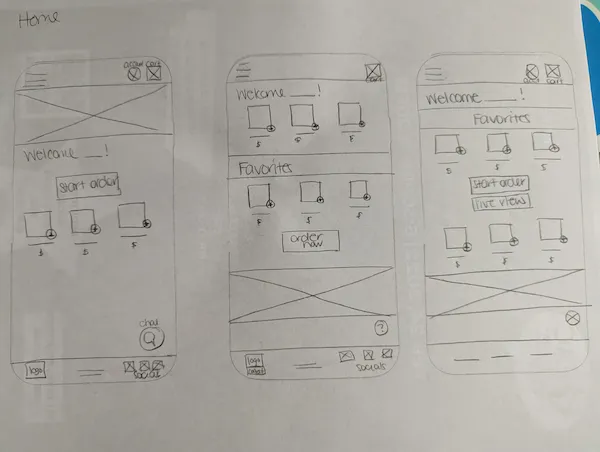 Home
cart
Welcome __!
start order
$ $ $
chat
logo
socials
cart
Welcome ___!
$ $ $
Favorites
$ $ $
order
now
?
logo
socials
cart
Welcome ____!
Favorites
$ $ $
start order
live view
$ $ $